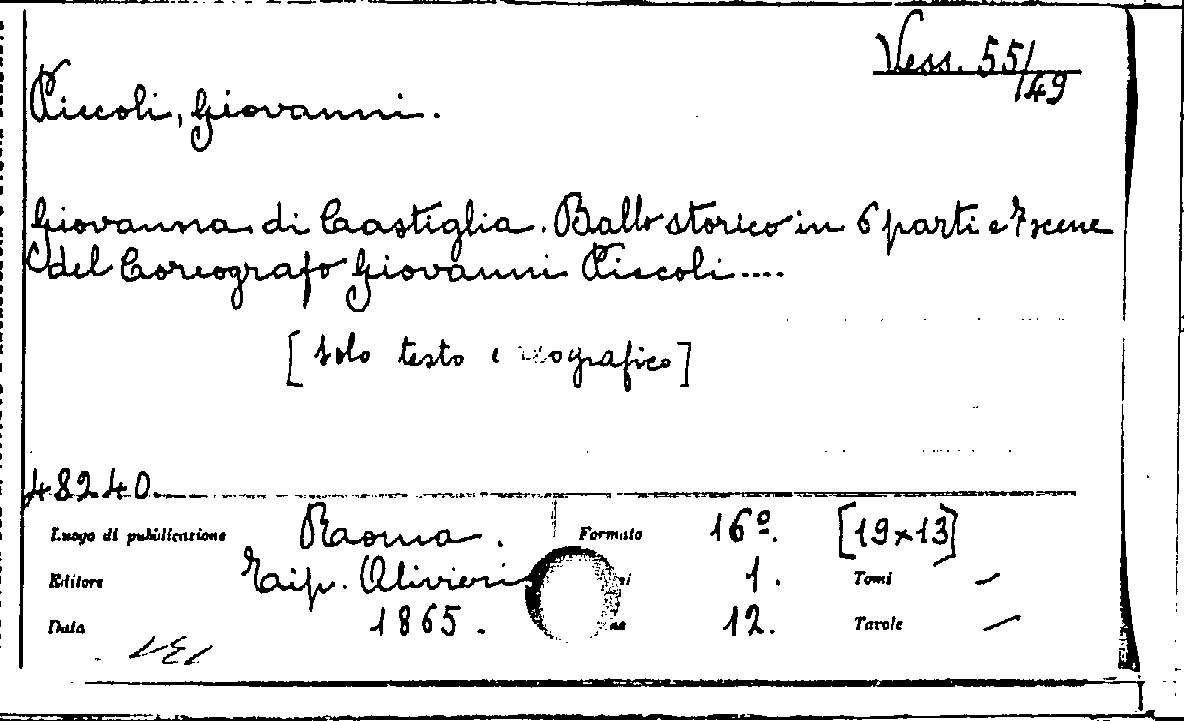 Vess. 55/49
Piccoli, Giovanni.
Giovanna di Castiglia. Ballo storico in 6 parti e 7 scene
del Coreografo Giovanni Piccoli....
[solo testo eografico]
48240.
Luogo di pubblicazione Roma. Formato 16º. [19x13]
Editore Tip. Olivieri 1. Tomi –
Data 1865. 12. Tavole –